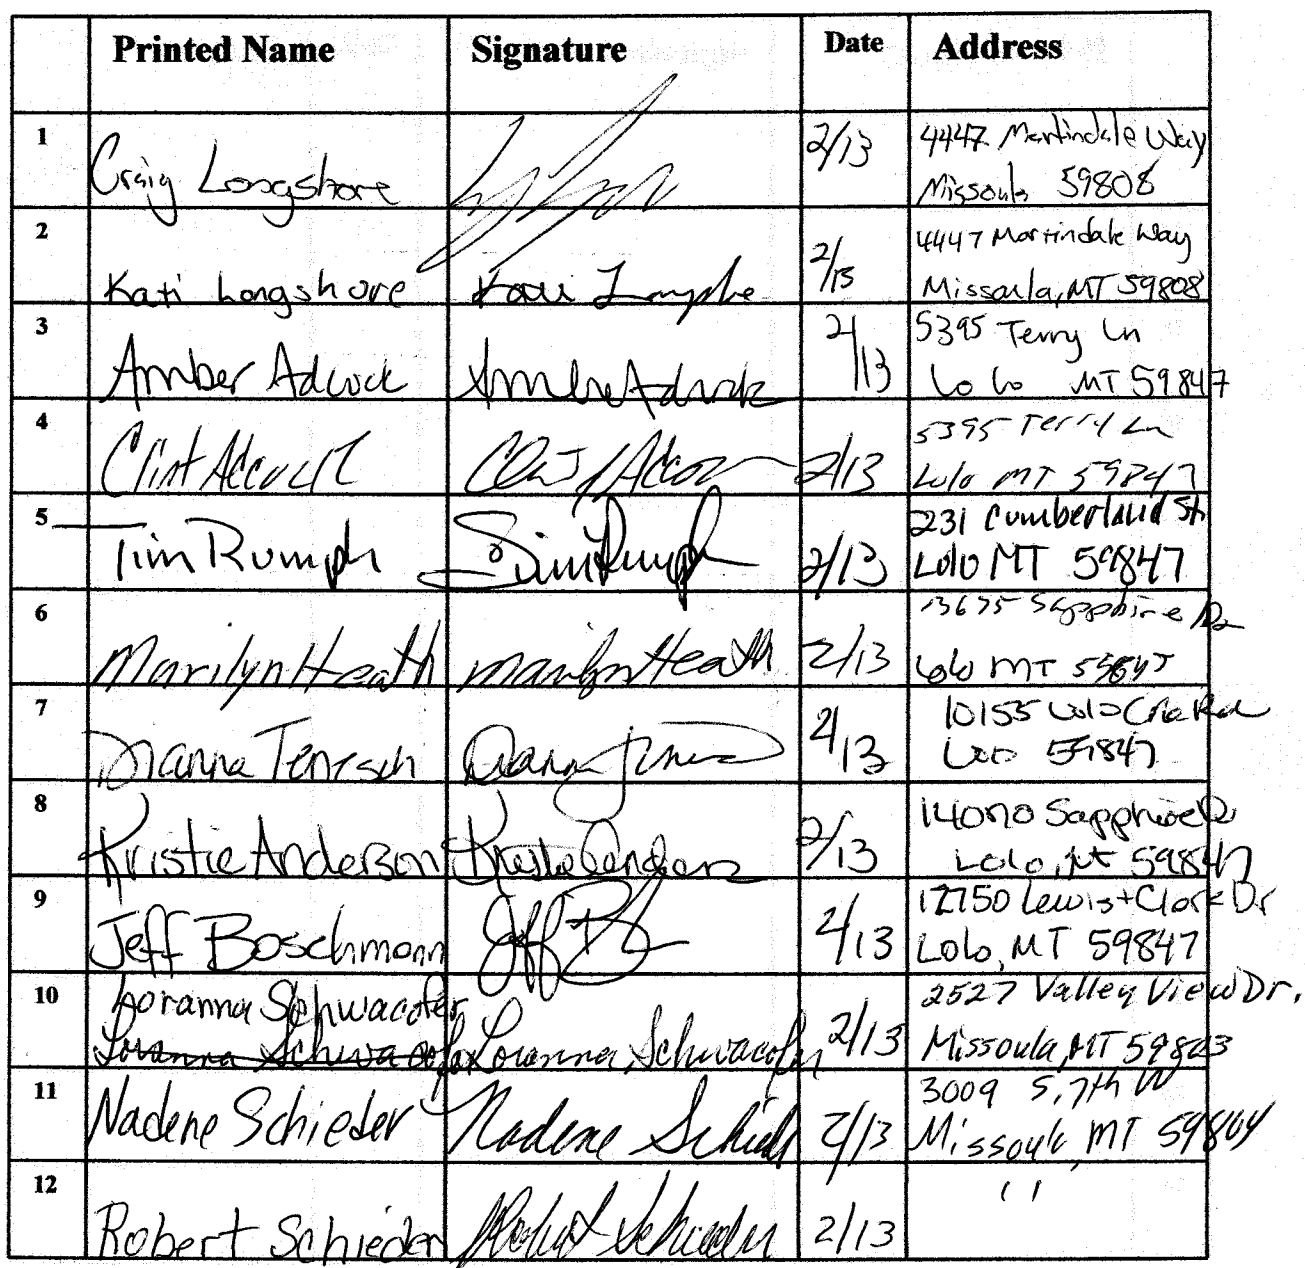 Printed Name Signature Date Address
1 Craig Longshore 2/13 4447 Martindale Way
Missoula 59808
2 Kati Longshore 2/13 4447 Martindale Way
Missoula, MT 59808
3 Amber Adcock Amber Adcock 2/13 5395 Terry Ln
Lolo MT 59847
4 Clint Adcock 2/13 5395 Terry Ln
Lolo MT 59847
5 Tim Rumph Tim Rumph 2/13 231 Cumberland St
Lolo MT 59847
6 Marilyn Heath Marilyn Heath 2/13 13675 Sapphire Dr
Lolo MT 59847
7 Dianna Tenesch 2/13 10155 Lolo Crk Rd
Lolo 59847
8 Kristie Anderson 2/13 14070 Sapphire Dr
Lolo, Mt 59847
9 Jeff Boschmann Jeff B 2/13 12750 Lewis + Clark Dr
Lolo, MT 59847
10 Loranna Schwacofer 2527 Valley View Dr.
Loranna Schwacofer Loranna Schwacofer 2/13 Missoula, MT 59803
11 Nadene Schieder Nadene Schieder 2/13 3009 S. 7th W
Missoula, MT 59804
12 Robert Schieder Robert Schieder 2/13 "